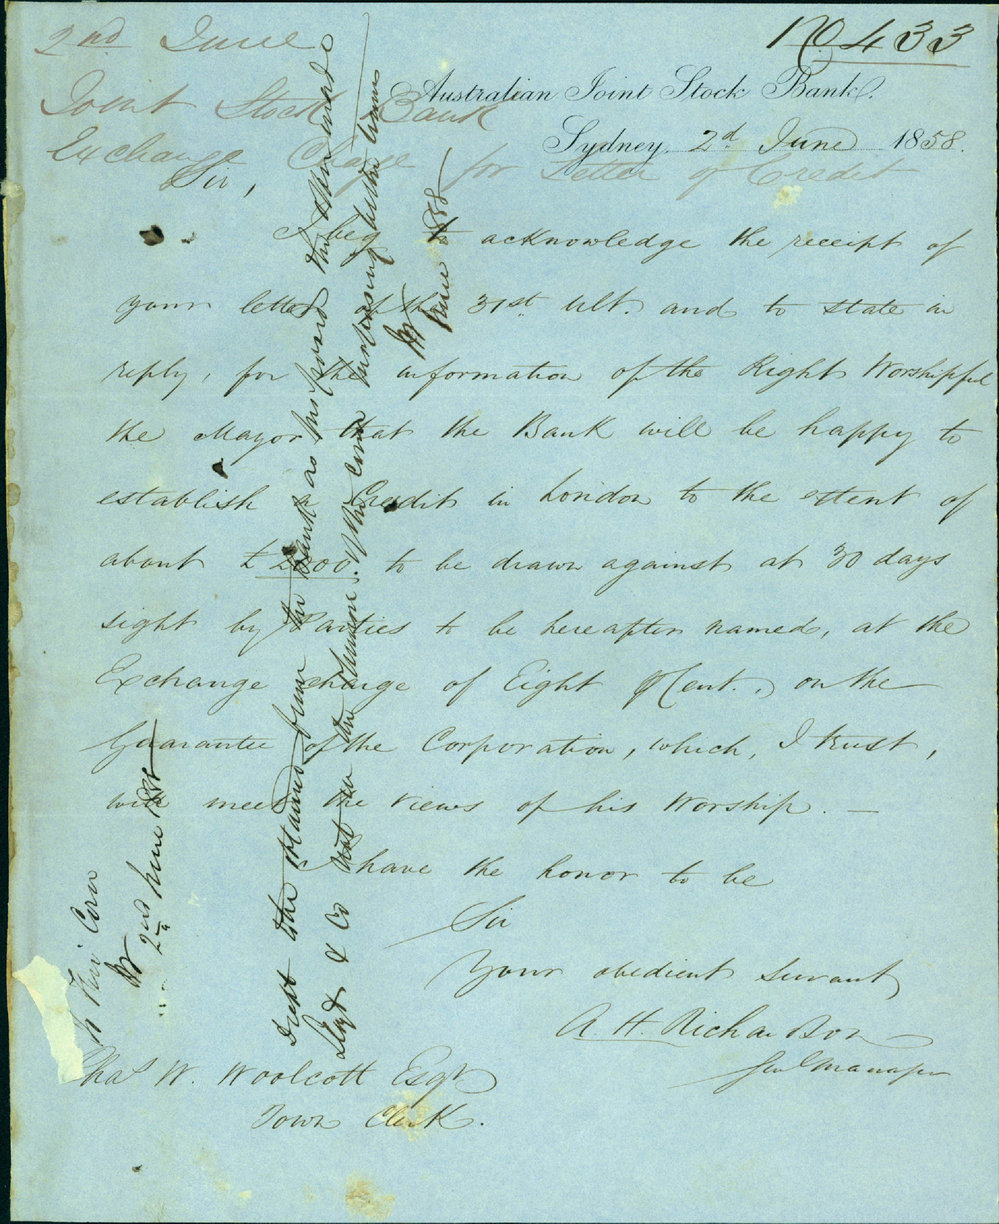 2nd June
No 433
Joint Stock Bank
Exchange Charge for Letter of Credit
Australian Joint Stock Bank.
Sydney, 2d June 1858.
Sir,
I beg to acknowledge the receipt of
your letter of the 31st. ult. and to state in
reply, for the information of the Right Worshipful
the Mayor that the Bank will be happy to
establish a Credit in London to the extent of
about £2000 to be drawn against at 30 days
sight by Parties to be hereafter named, at the
Exchange charge of Eight P Cent., on the
Guarantee of the Corporation, which, I trust,
will meet the views of his Worship. —
I have the honor to be
Sir
Your obedient Servant
A H Richardson
Genl Manager
Thas W. Woolcott Esqr
Town Clerk.
Draft to be obtained from the Bank as
Lloyd & Co not in the
June 1858
2nd June 1858